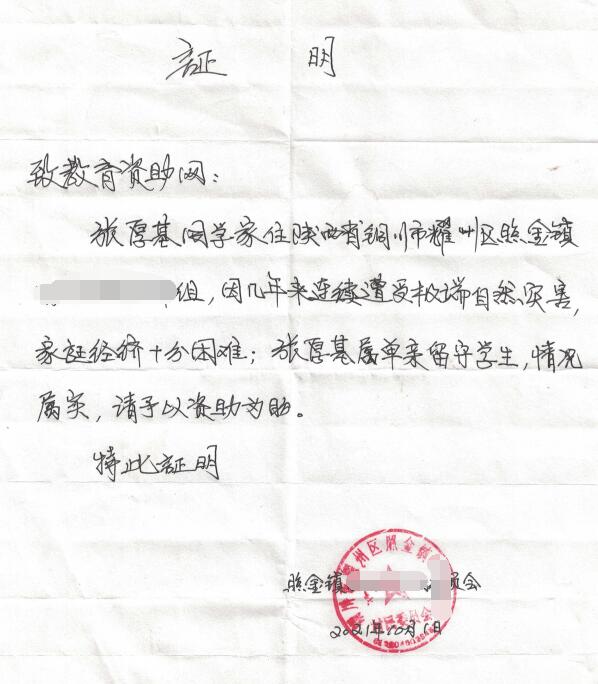 证 明
致教育资助网：
张厚基同学家住陕西省铜川市耀州区照金镇
组，因几年来连续遭受极端自然灾害，
家庭经济十分困难；张厚基属单亲留守学生，情况
属实，请予以资助为盼。
特此证明
州区照金镇
照金镇 员会
2021年10月1日